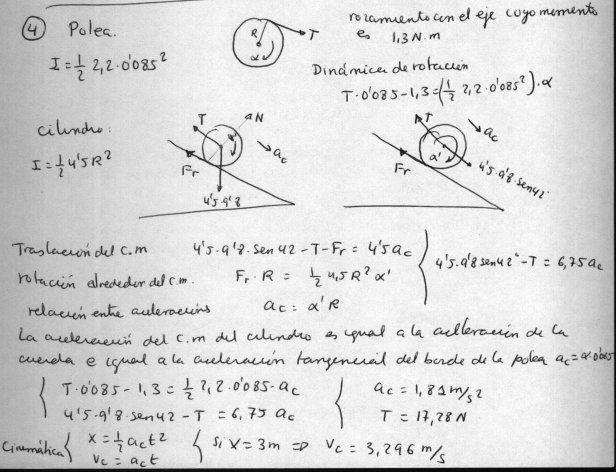 4 Polea.
I = 1/2 2,2·0'085²
R
T
α
rozamiento con el eje cuyo momento
es 1,3 N.m
Dinámica de rotación
T·0'085 - 1,3 = (1/2 2,2·0'085²)·α
cilindro:
I = 1/2 4'5 R²
T
N
a_c
Fr
4'5·9'8
T
a_c
α'
Fr
4'5·9'8·sen42
Traslación del c.m 4'5·9'8·sen 42 - T - Fr = 4'5 a_c
rotación alrededor del c.m. Fr·R = 1/2 4,5 R² α'
relación entre aceleraciones a_c = α' R
4'5·9'8 sen42° - T = 6,75 a_c
La aceleración del c.m del cilindro es igual a la aceleración de la
cuerda e igual a la aceleración tangencial del borde de la polea a_c = α·0'085
T·0'085 - 1,3 = 1/2 2,2·0'085·a_c
4'5·9'8·sen42 - T = 6,75 a_c
a_c = 1,81 m/s²
T = 17,28 N
Cinemática x = 1/2 a_c t²
v_c = a_c t
si x = 3m ⇒ v_c = 3,296 m/s